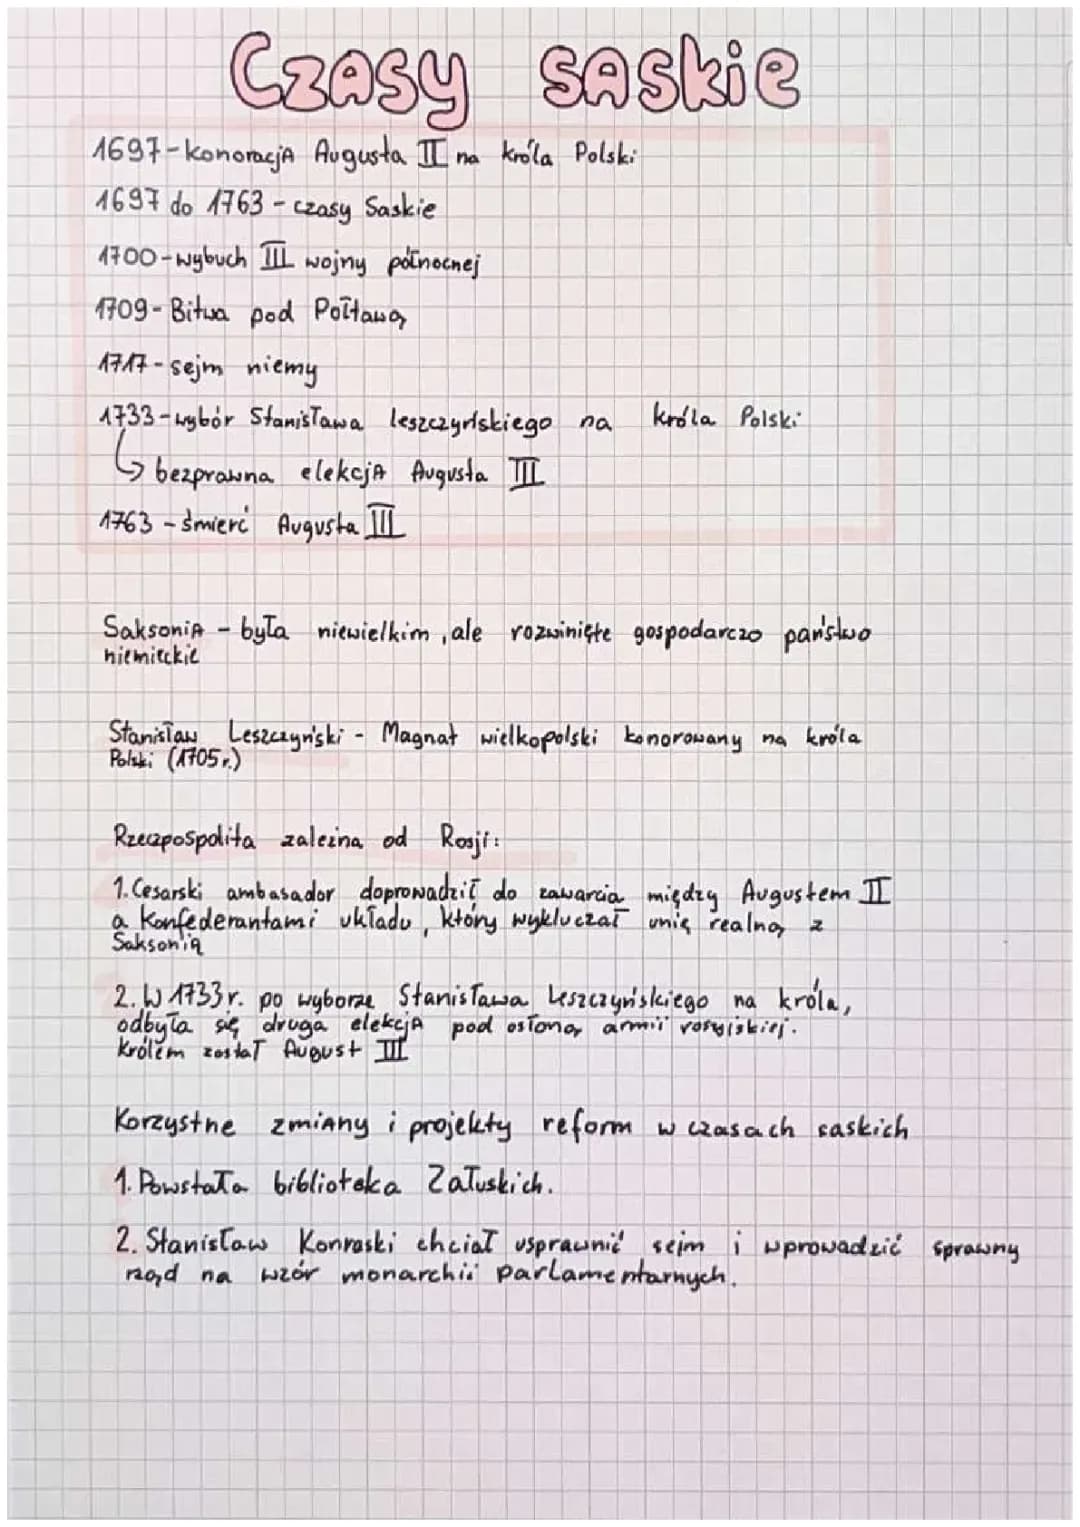 Czasy saskie
1697-konoracja Augusta II na króla Polski
1697 do 1763 - czasy Saskie
1700-wybuch III wojny północnej
1709-Bitwa pod Połtawą
1717-sejm niemy
1733-wybór Stanisława leszczyńskiego na króla Polski
↳ bezprawna elekcja Augusta III
1763 - śmierć Augusta III
Saksonia - była niewielkim, ale rozwinięte gospodarczo państwo
niemieckie
Stanisław Leszczyński - Magnat wielkopolski konorowany na króla
Polski (1705r.)
Rzeczpospolita zależna od Rosji:
1. Cesarski ambasador doprowadził do zawarcia między Augustem II
a Konfederantami układu, który wykluczał unię realną z
Saksonią
2. W 1733r. po wyborze Stanisława Leszczyńskiego na króla,
odbyła się druga elekcja pod osłoną armii rosyjskiej.
Królem został August III
Korzystne zmiany i projekty reform w czasach saskich
1. Powstała biblioteka Załuskich.
2. Stanisław Konraski chciał usprawnić sejm i wprowadzić sprawny
rząd na wzór monarchii parlamentarnych.